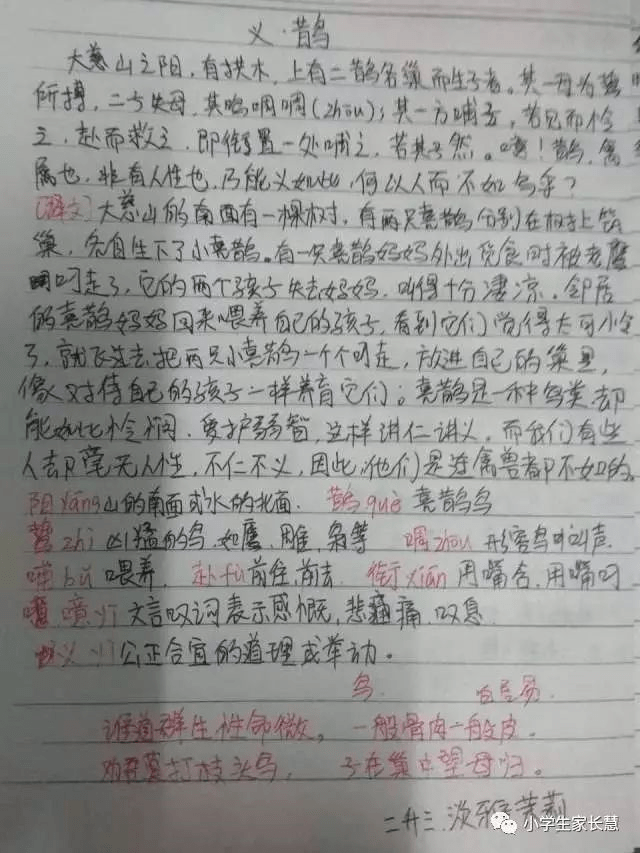 义·鹊
大慈山之阳，有拱木，上有二鹊各巢而生子者。其一母为鸷
所搏，二子失母，其鸣啁啁(zhōu)；其一方哺子，若见而怜
之，赴而救之，即衔置一处哺之，若其子然。噫！鹊，禽
属也，非有人性也，乃能义如此，何以人而不如鸟乎？
[译文]大慈山的南面有一棵树，有两只喜鹊分别在树上筑
巢，各自生下了小喜鹊。有一只喜鹊妈妈外出觅食时被老鹰
叼走了，它的两个孩子失去妈妈，叫得十分凄凉。邻居
的喜鹊妈妈回来喂养自己的孩子，看到它们觉得大可小怜
了，就飞过去把两只小喜鹊一个个叼走，放进自己的巢里，
像对待自己的孩子一样养育它们。喜鹊是一种鸟类却
能如此怜悯、爱护弱智，这样讲仁讲义，而我们有些
人去却毫无人性，不仁不义，因此，他们是连禽兽都不如的。
阳 yáng 山的南面或水的北面. 鹊 què 喜鹊鸟
鸷 zhì 凶猛的鸟，如鹰、雕、枭等 啁 zhou 形容鸟叫声
哺 bǔ 喂养. 赴 fù 前往，前去. 衔 xián 用嘴含，用嘴叼
噫 yī 文言叹词表示感慨，悲痛，叹息
义 yì 公正合宜的道理或举动。
鸟 白居易
谁道群生性命微，一般骨肉一般皮.
劝君莫打枝头鸟，子在巢中望母归。
二升三 淡雅茉莉
小学生家长慧